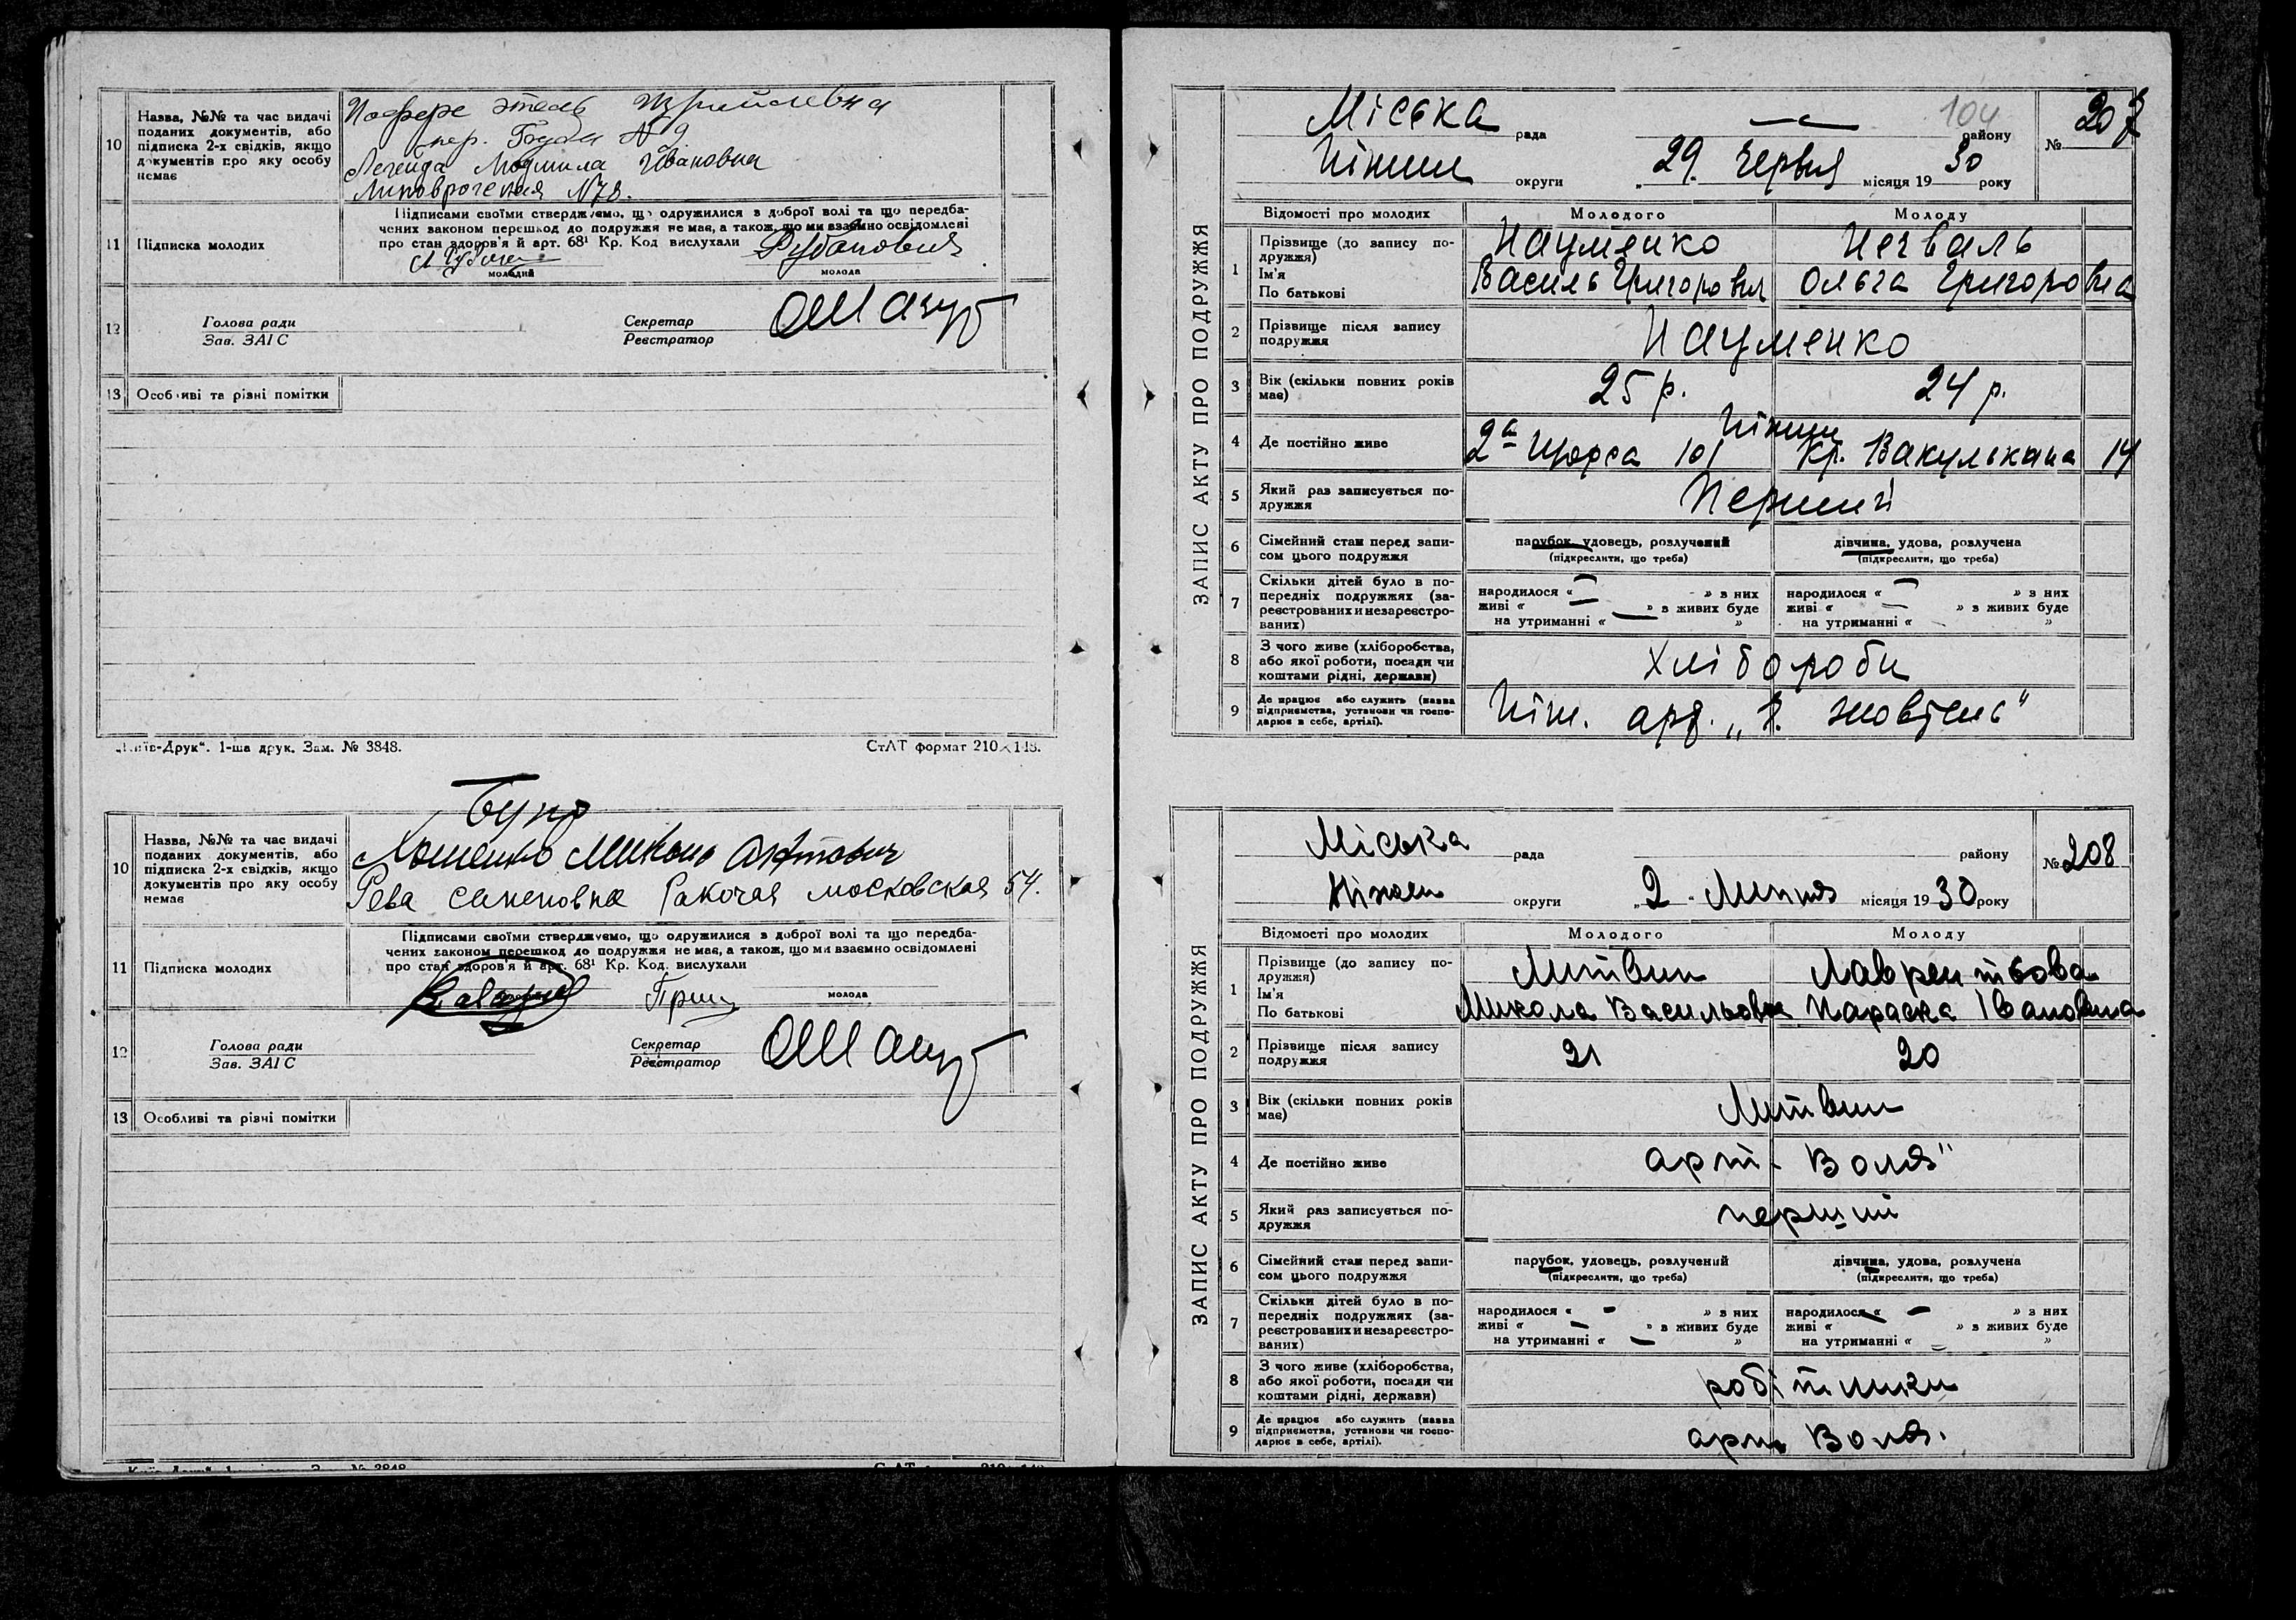 10
Назва, №№ та час видачі
поданих документів, або
підписка 2-х свідків, якщо
документів про яку особу
немає
Людмила Івановна
N 78.
11
Підписка молодих
Підписами своїми стверджуємо, що одружилися з доброї волі та що передба-
чених законом перешкод до подружжя не має, а також, що ми взаємно освідомлені
про стан здоров'я й арт. 68¹ Кр. Код вислухали
молодий
молода
12
Голова ради
Зав. ЗАГС
Секретар
Реєстратор
13
Особливі та різні помітки
„Київ-Друк“. 1-ша друк. Зам. № 3848.
СтАТ формат 210×148.
10
Назва, №№ та час видачі
поданих документів, або
підписка 2-х свідків, якщо
документів про яку особу
немає
Рева Семеновна московская 54.
11
Підписка молодих
Підписами своїми стверджуємо, що одружилися з доброї волі та що передба-
чених законом перешкод до подружжя не має, а також, що ми взаємно освідомлені
про стан здоров'я й арт. 68¹ Кр. Код. вислухали
молода
12
Голова ради
Зав. ЗАГС
Секретар
Реєстратор
13
Особливі та різні помітки
ЗАПИС АКТУ ПРО ПОДРУЖЖЯ
104
Міська рада району
№ 207
Ніжин округи „29. Червня місяця 1930 року
Відомості про молодих
Молодого
Молоду
1
Прізвище (до запису по-
дружжя)
Ім'я
По батькові
Науменко
Василь Григорович
Нечваль
Ольга Григоровна
2
Прізвище після запису
подружжя
Науменко
3
Вік (скільки повних років
має)
25 р.
24 р.
4
Де постійно живе
Ніжин
2а Щорса 101
Кр. 14
5
Який раз записується по-
дружжя
Перший
6
Сімейний стан перед запи-
сом цього подружжя
парубок, удовець, розлучений
(підкреслити, що треба)
дівчина, удова, розлучена
(підкреслити, що треба)
7
Скільки дітей було в по-
передніх подружжях (за-
реєстрованих и незареєстро-
ваних)
народилося « — » з них
живі « — » з живих буде
на утриманні « — »
народилося « — » з них
живі « — » з живих буде
на утриманні « »
8
З чого живе (хліборобства,
або якої роботи, посади чи
коштами рідні, держави)
хлібороби
9
Де працює або служить (назва
підприємства, установи чи госпо-
дарює в себе, артілі).
Ніж. арт. Жовтень“
ЗАПИС АКТУ ПРО ПОДРУЖЖЯ
Міська рада району
№ 208
Ніжин округи „2“ Липня місяця 1930 року
Відомості про молодих
Молодого
Молоду
1
Прізвище (до запису по-
дружжя)
Ім'я
По батькові
Литвин
Микола
Лаврентьова
Параска Івановна
2
Прізвище після запису
подружжя
21
20
3
Вік (скільки повних років
має)
Литвин
4
Де постійно живе
арт. Воля“
5
Який раз записується по-
дружжя
перший
6
Сімейний стан перед запи-
сом цього подружжя
парубок, удовець, розлучений
(підкреслити, що треба)
дівчина, удова, розлучена
(підкреслити, що треба)
7
Скільки дітей було в по-
передніх подружжях (за-
реєстрованих и незареєстро-
ваних)
народилося « — » з них
живі « — » з живих буде
на утриманні « — »
народилося « — » з них
живі « » з живих буде
на утриманні « — »
8
З чого живе (хліборобства,
або якої роботи, посади чи
коштами рідні, держави)
робітники
9
Де працює або служить (назва
підприємства, установи чи госпо-
дарює в себе, артілі).
арт. Воля.